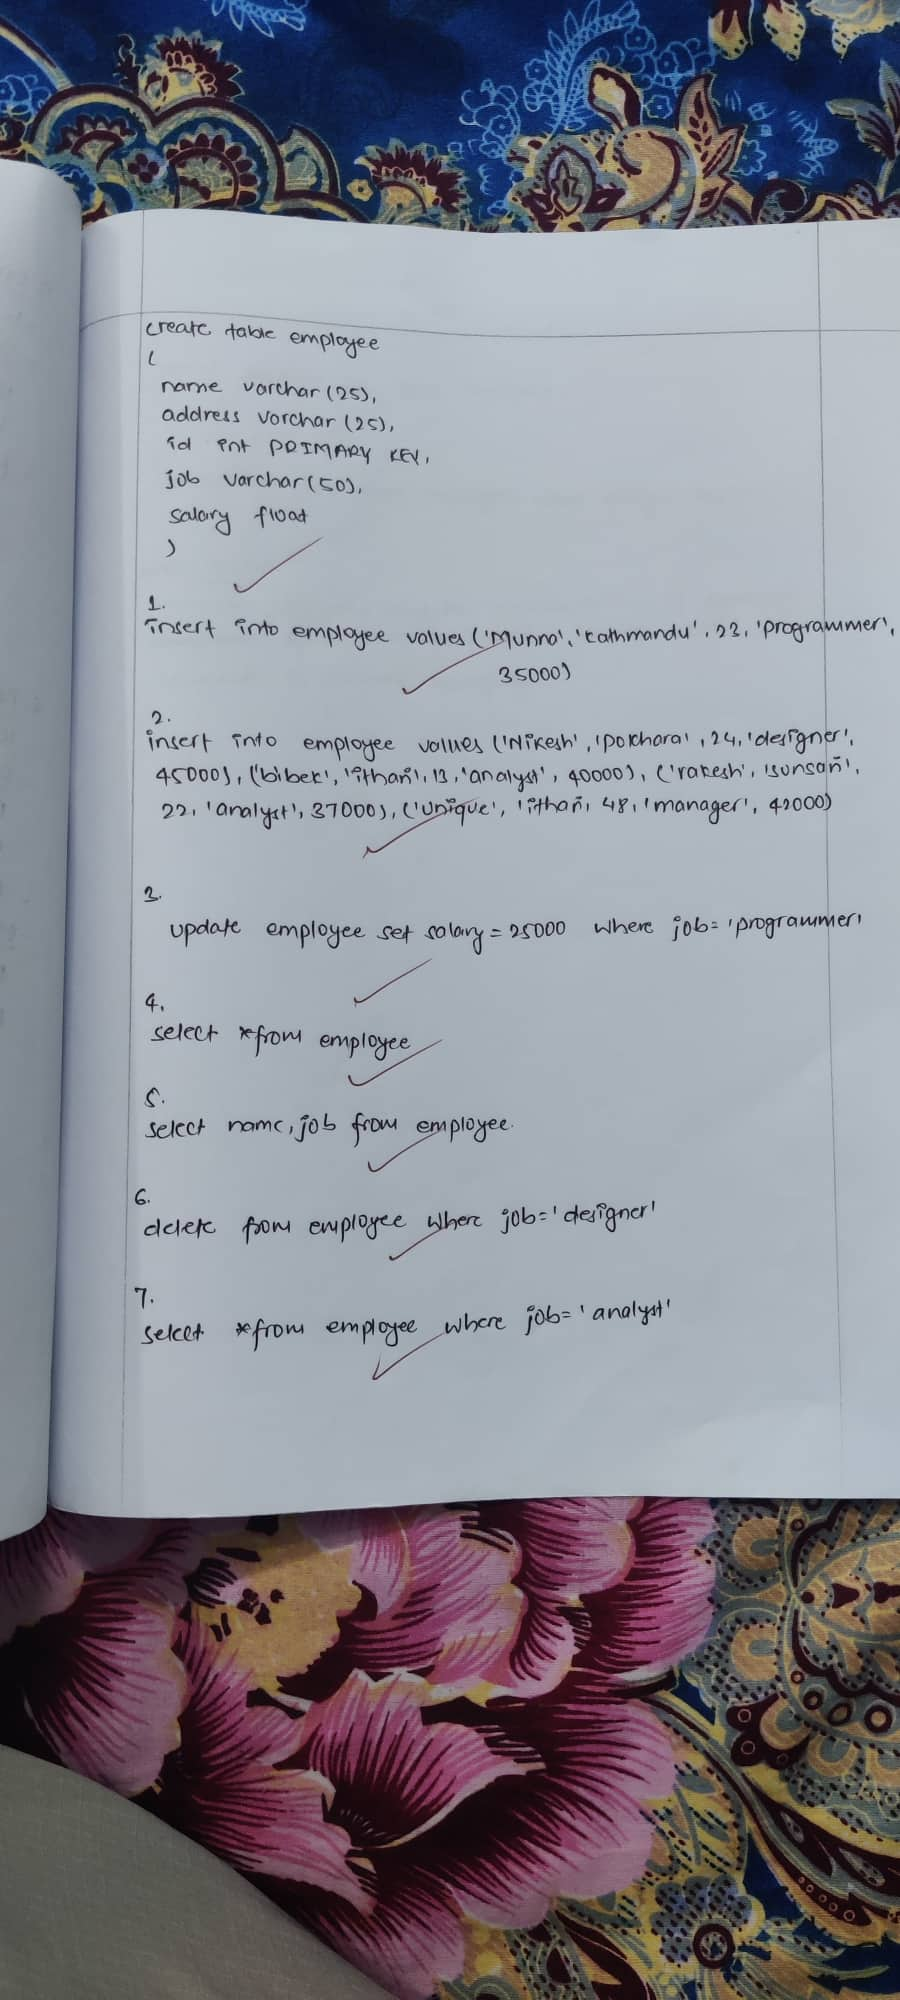 create table employee
(
name varchar(25),
address varchar(25),
id int PRIMARY KEY,
job varchar(50),
salary float
)
1.
insert into employee values ('Munna', 'kathmandu', 23, 'programmer',
35000)
2.
insert into employee values ('Nikesh', 'pokhara', 24, 'designer',
45000), ('bibek', 'ithari', 13, 'analyst', 40000), ('rakesh', 'sunsari',
22, 'analyst', 37000), ('Unique', 'ithari, 48, 'manager', 42000)
3.
update employee set salary = 25000 where job = 'programmer'
4.
select *from employee
5.
select name, job from employee.
6.
delete from employee where job='designer'
7.
select *from employee where job= 'analyst'